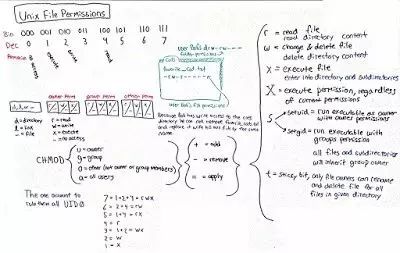 Unix File Permissions
Bin 000 001 010 011 100 101 110 111
Dec 0 1 2 3 4 5 6 7
no access
execute
write
read
d,l,-
owner perm
group perm
d = directory
l = link
- = file
r = read
w = write
x = execute
- = no access
CHMOD
u = owner
g = group
o = other (not owner or group members)
a = all users
+ = add
- = remove
= = apply
The one account to
rule them all UID 0
7 = 1+2+4 = rwx
6 = 2+4 = rw
5 = 1+4 = rx
4 = r
3 = 1+2 = wx
2 = w
1 = x
r = read file
read directory content
w = change & delete file
delete directory content
x = execute file
enter into directory and subdirectories
X = execute permission, regardless
of current permissions
s
setuid = run executable as owner with
owner permissions
setgid = run executable with
groups permission
all files and subdirectories
will inherit group owner
t = sticky bit, only file owners can rename
and delete file for all
files in given directory